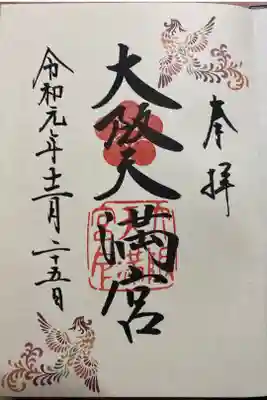 奉拝
大阪天満宮
令和元年十二月二十五日